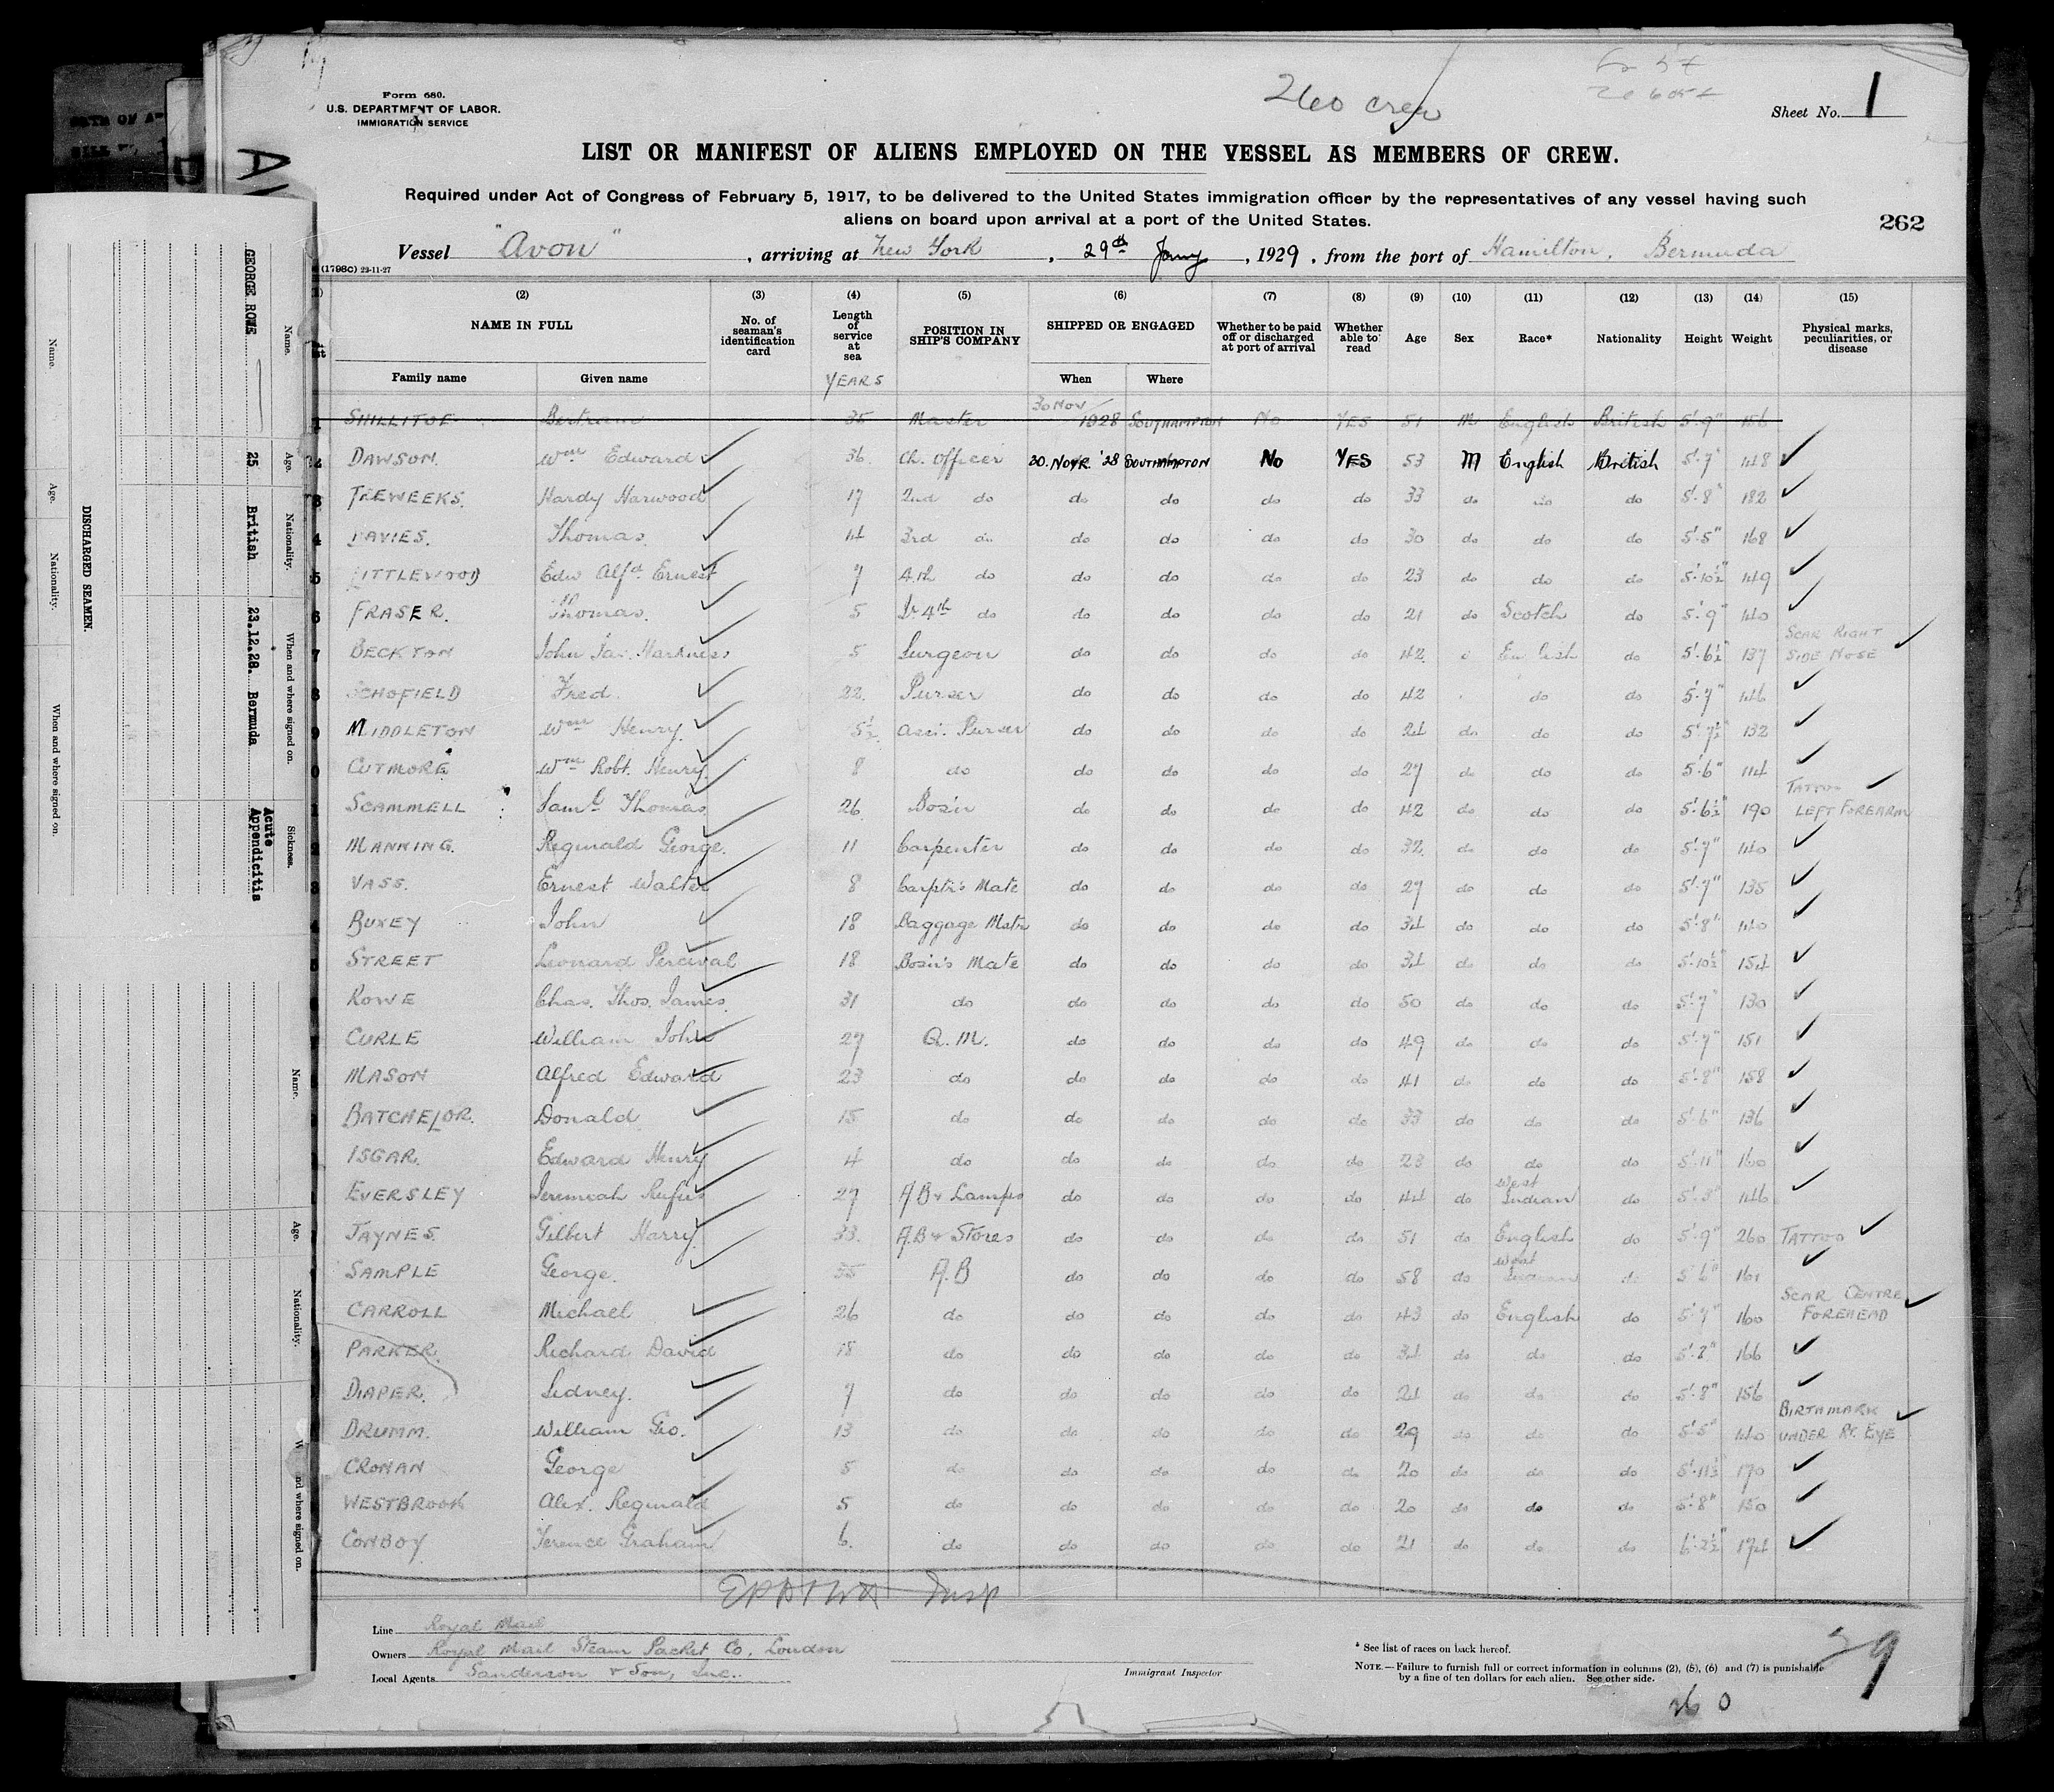 Form 680.
U.S. DEPARTMENT OF LABOR.
IMMIGRATION SERVICE
260 crew
Sheet No. 1
LIST OR MANIFEST OF ALIENS EMPLOYED ON THE VESSEL AS MEMBERS OF CREW.
Required under Act of Congress of February 5, 1917, to be delivered to the United States immigration officer by the representatives of any vessel having such
aliens on board upon arrival at a port of the United States.
262
Vessel "Avon", arriving at New York, 29th Jany, 1929, from the port of Hamilton, Bermuda
(1798c) 22-11-27
(2) (3) (4) (5) (6) (7) (8) (9) (10) (11) (12) (13) (14) (15)
NAME IN FULL
Family name Given name
No. of seaman's identification card
Length of service at sea
YEARS
POSITION IN SHIP'S COMPANY
SHIPPED OR ENGAGED
When Where
Whether to be paid off or discharged at port of arrival
Whether able to read
Age Sex Race* Nationality Height Weight
Physical marks, peculiarities, or disease
SHILLITOE Bertram 35 Master 30 Nov 1928 SOUTHAMPTON No YES 51 M English British 5'.9" 156
DAWSON. Wm Edward 36 Ch. Officer 30. NOVR. '28 SOUTHAMPTON No YES 53 M English British 5'.7" 148
TREWEEKS. Hardy Harwood 17 2nd do do do do do 33 do do do 5'.8" 182
DAVIES. Thomas. 14 3rd do do do do do 30 do do do 5'.5" 168
LITTLEWOOD Edw Alfd Ernest 7 4th do do do do do 23 do do do 5'.10½" 149
FRASER. Thomas. 5 Jr 4th do do do do do 21 do Scotch do 5'.9" 140
BECKTON John Jas. Harkness 5 Surgeon do do do do 42 English do 5'.6½" 137 SCAR RIGHT SIDE NOSE
SCHOFIELD Fred. 22. Purser do do do do 42 do do 5'.7" 146
MIDDLETON Wm Henry. 5½ Assi. Purser do do do do 24 do do do 5'.7½" 132
CUTMORE Wm Robt. Henry. 8 do do do do do 27 do do do 5'.6" 114
SCAMMELL Saml Thomas 26 Bos'n do do do do 42 do do do 5'.6½" 190 TATTOO LEFT FOREARM
MANNING. Reginald George. 11 Carpenter do do do do 32 do do do 5'.7" 140
VASS. Ernest Walter 8 Carptr's Mate do do do do 27 do do do 5'.7" 135
BUXEY John 18 Baggage Mstr do do do do 34 do do do 5'.8" 140
STREET Leonard Percival 18 Bos'n's Mate do do do do 34 do do do 5'.10½" 154
ROWE Chas. Thos. James 31 do do do do do 50 do do do 5'.7" 130
CURLE William John 27 Q.M. do do do do 49 do do do 5'.7" 151
MASON Alfred Edward 23 do do do do do 41 do do do 5'.8" 158
BATCHELOR. Donald 15 do do do do do 33 do do do 5'.6" 136
ISGAR. Edward Henry 4 do do do do do 23 do do do 5'.11" 160
EVERSLEY Jeremiah Rufus 27 A.B & Lamps do do do do 44 do West Indian do 5'.3" 146
JAYNES. Gilbert Harry 33. A.B & Stores do do do do 51 do English do 5'.9" 260 TATTOO
SAMPLE George. 35 A.B do do do do 58 do West Indian do 5'.6" 161
CARROLL Michael 26 do do do do do 43 do English do 5'.7" 160 SCAR CENTRE FOREHEAD
PARKER. Richard David 18 do do do do do 34 do do do 166
DIAPER. Sidney. 7 do do do do do 24 do do do 5'.8" 156
DRUMM. William Geo. 13 do do do do do 29 do do do 5'.5" 140 BIRTHMARK UNDER RT. EYE
CRONAN George 5 do do do do do 20 do do do 5'.11½" 170
WESTBROOK Alex. Reginald 5 do do do do do 20 do do do 5'.8" 150
CONBOY Terence Graham 6. do do do do do 21 do do do 6'.2½" 174
Insp
Line Royal Mail
Owners Royal Mail Steam Packet Co. London
Local Agents Sanderson & Son, Inc.
Immigrant Inspector
* See list of races on back hereof.
NOTE.—Failure to furnish full or correct information in columns (2), (5), (6) and (7) is punishable
by a fine of ten dollars for each alien. See other side.
29
260
DISCHARGED SEAMEN.
Name. Age. Nationality. When and where signed on. Sickness.
GEORGE ROWE 25 British 23.12.28. Bermuda Acute Appendicitis
Name. Age. Nationality. When and where signed on.
Name. Age. Nationality. W nd where signed on.